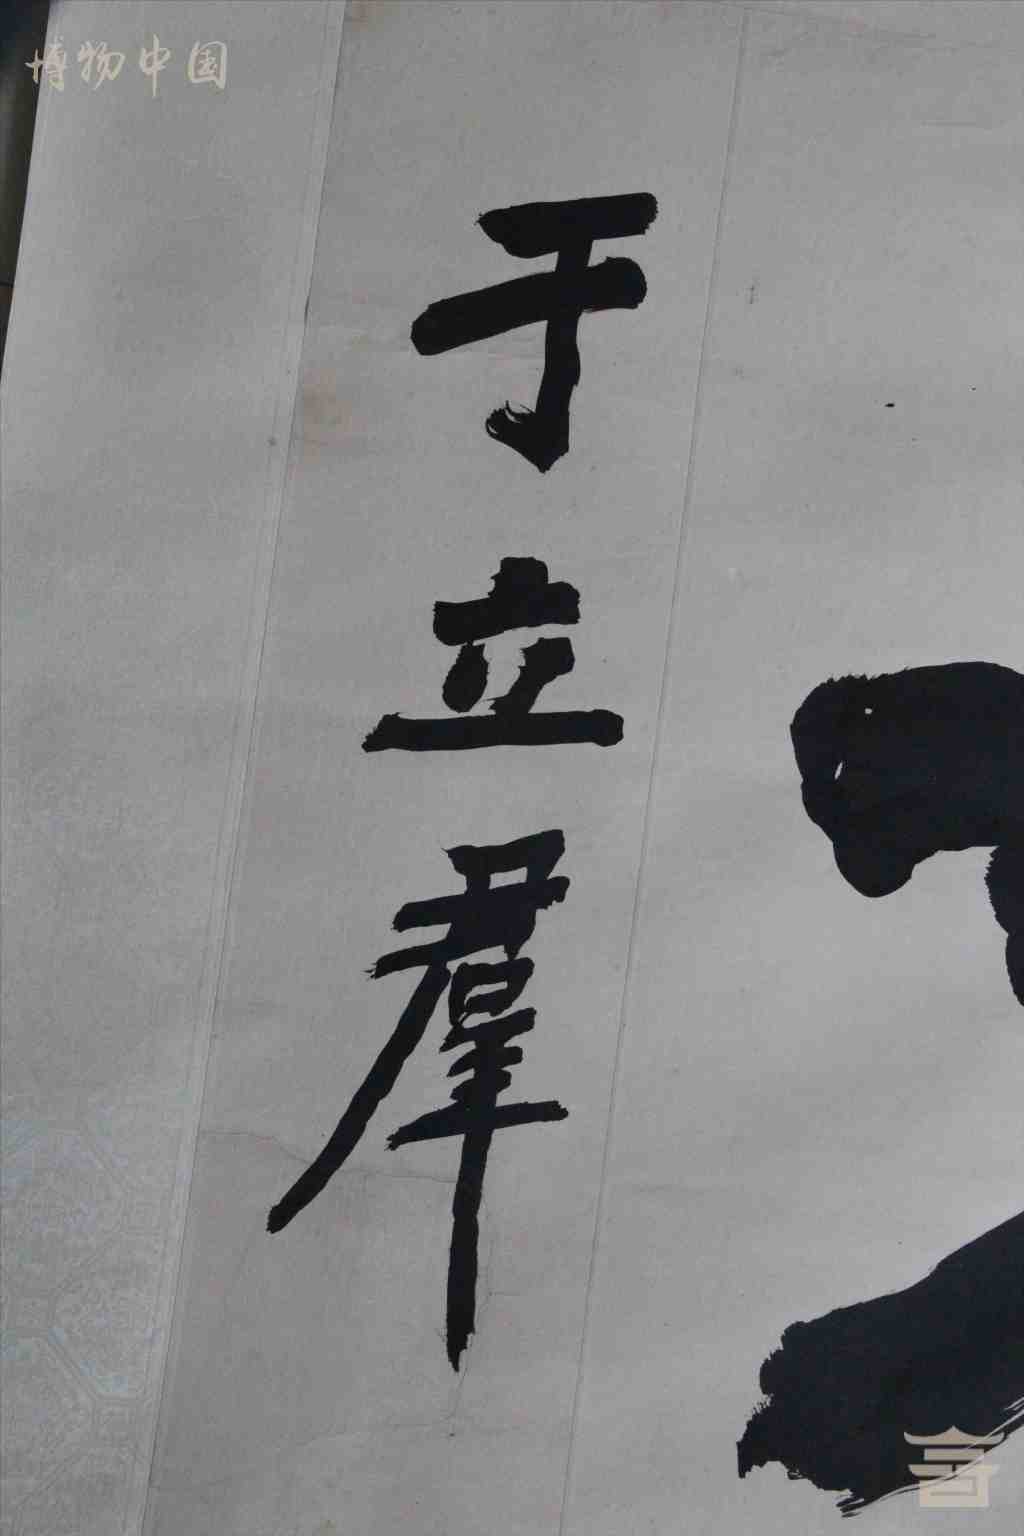 博物中国
于立羣